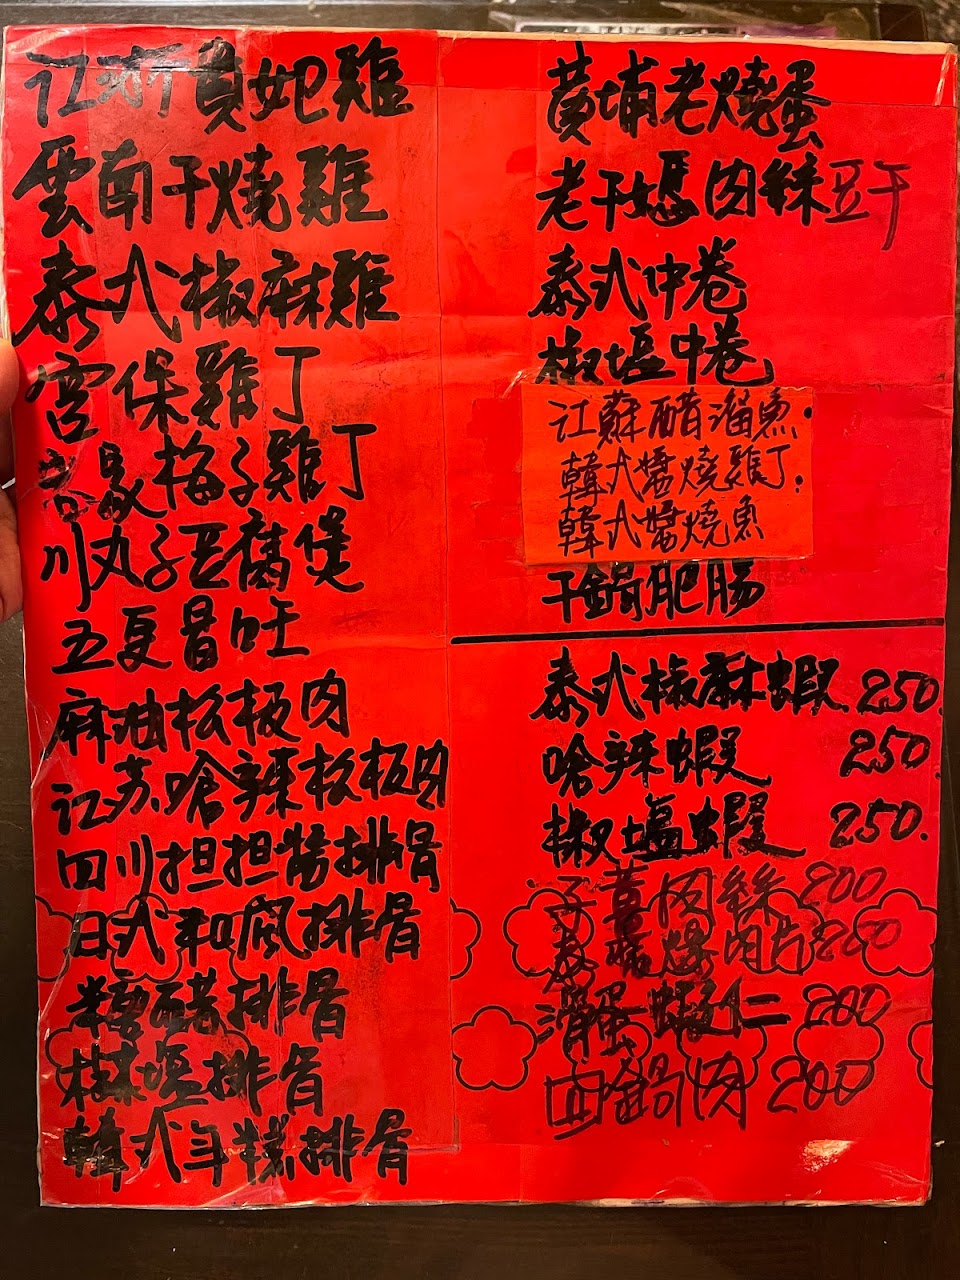 江浙貴妃雞
雲南干燒雞
泰式椒麻雞
宮保雞丁
客家梅子雞丁
川丸子豆腐煲
五更胃旺
麻油松板肉
江苏嗆辣松板肉
四川担担醬排骨
日式和風排骨
糖醋排骨
椒塩排骨
韓式年糕排骨
黃埔老燒蛋
老干媽肉絲豆干
泰式中卷
椒塩中卷
江蘇醋溜魚
韓式醬燒雞丁
韓式醬燒魚
干鍋肥腸
泰式椒麻蝦 250
嗆辣蝦 250
椒塩蝦 250
子薑肉絲 200
蔥爆肉片 200
滑蛋蝦仁 200
回鍋肉 200